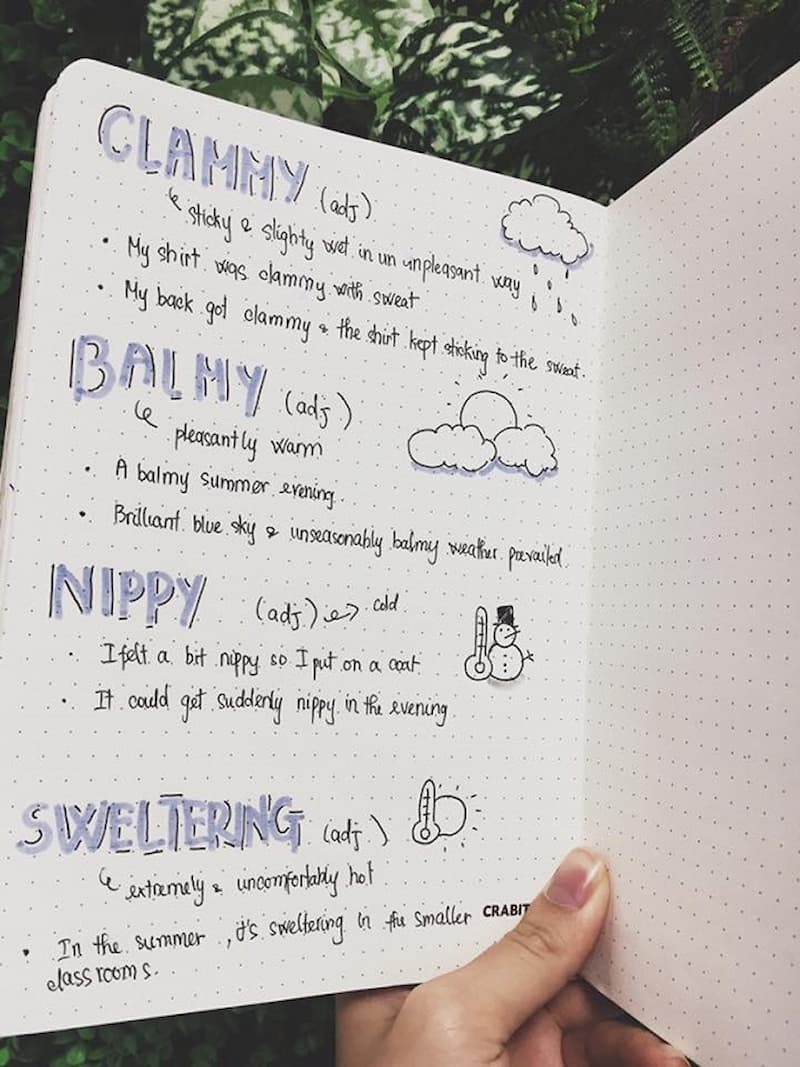 CLAMMY (adj)
↳ sticky & slighty wet in un unpleasant way
• My shirt was clammy with sweat
• My back got clammy & the shirt kept sticking to the sweat.
BALMY (adj)
↳ pleasantly warm
• A balmy summer evening.
• Brilliant blue sky & unseasonably balmy weather prevailed.
NIPPY (adj) ↪ cold
• I felt a bit nippy so I put on a coat
• It could get suddenly nippy in the evening
SWELTERING (adj)
↳ extremely & uncomfortably hot
• In the summer, it's sweltering in the smaller
classrooms.
CRABIT